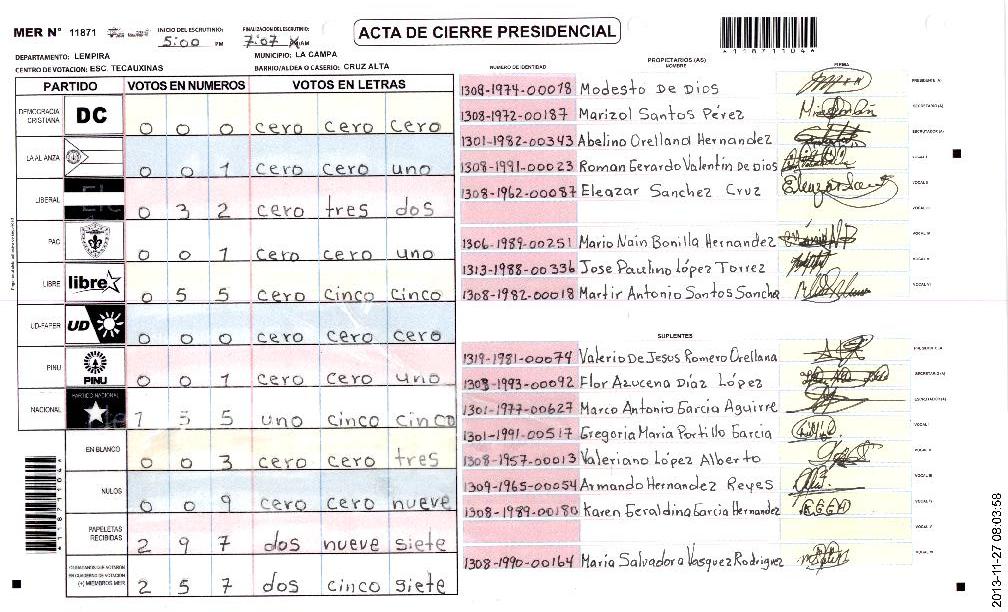 MER N° 11871
INICIO DEL ESCRUTINIO: 5:00 PM
FINALIZACION DEL ESCRUTINIO: 7:07 AM
ACTA DE CIERRE PRESIDENCIAL
11871104
DEPARTAMENTO: LEMPIRA
MUNICIPIO: LA CAMPA
CENTRO DE VOTACION: ESC. TECAUXINAS
BARRIO/ALDEA O CASERIO: CRUZ ALTA
PARTIDO VOTOS EN NUMEROS VOTOS EN LETRAS
DEMOCRACIA CRISTIANA DC 0 0 0 cero cero cero
LA ALIANZA 0 0 1 cero cero uno
LIBERAL 0 3 2 cero tres dos
PAC 0 0 1 cero cero uno
LIBRE libre 0 5 5 cero cinco cinco
UD-FAPER UD 0 0 0 cero cero cero
PINU PINU 0 0 1 cero cero uno
NACIONAL PARTIDO NACIONAL 1 5 5 uno cinco cinco
EN BLANCO 0 0 3 cero cero tres
NULOS 0 0 9 cero cero nueve
PAPELETAS RECIBIDAS 2 9 7 dos nueve siete
CIUDADANOS QUE VOTARON EN CUADERNO DE VOTACION (+) MIEMBROS MER 2 5 7 dos cinco siete
NUMERO DE IDENTIDAD PROPIETARIOS (AS) NOMBRE FIRMA
1308-1974-00018 Modesto De Dios PRESIDENTE (A)
1308-1972-00187 Marizol Santos Pérez SECRETARIO (A)
1301-1982-00343 Abelino Orellana Hernandez ESCRUTADOR (A)
1308-1991-00023 Roman Gerardo Valentín De Dios VOCAL I
1308-1962-00087 Eleazar Sanchez Cruz VOCAL II
VOCAL III
1306-1989-00251 Mario Nain Bonilla Hernandez VOCAL IV
1313-1988-00336 Jose Paulino López Torrez VOCAL V
1308-1982-00018 Martir Antonio Santos Sancha VOCAL VI
SUPLENTES
1319-1981-00074 Valerio De Jesus Romero Orellana PRESIDENTE (A)
1308-1993-00092 Flor Azucena Díaz López SECRETARIO (A)
1301-1977-00627 Marco Antonio Garcia Aguirre ESCRUTADOR (A)
1301-1991-00517 Gregoria Maria Portillo Garcia VOCAL I
1308-1957-00013 Valeriano López Alberto VOCAL II
1309-1965-00054 Armando Hernandez Reyes VOCAL III
1308-1989-00180 Karen Geraldina Garcia Hernandez VOCAL IV
VOCAL V
1308-1990-00164 María Salvadora Vásquez Rodriguez VOCAL VI
11871104
2013-11-27 08:03:58